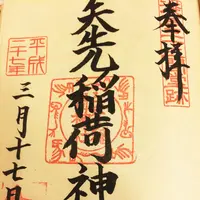 奉拝
矢先稲荷神
平成
二十七年
三月十七日